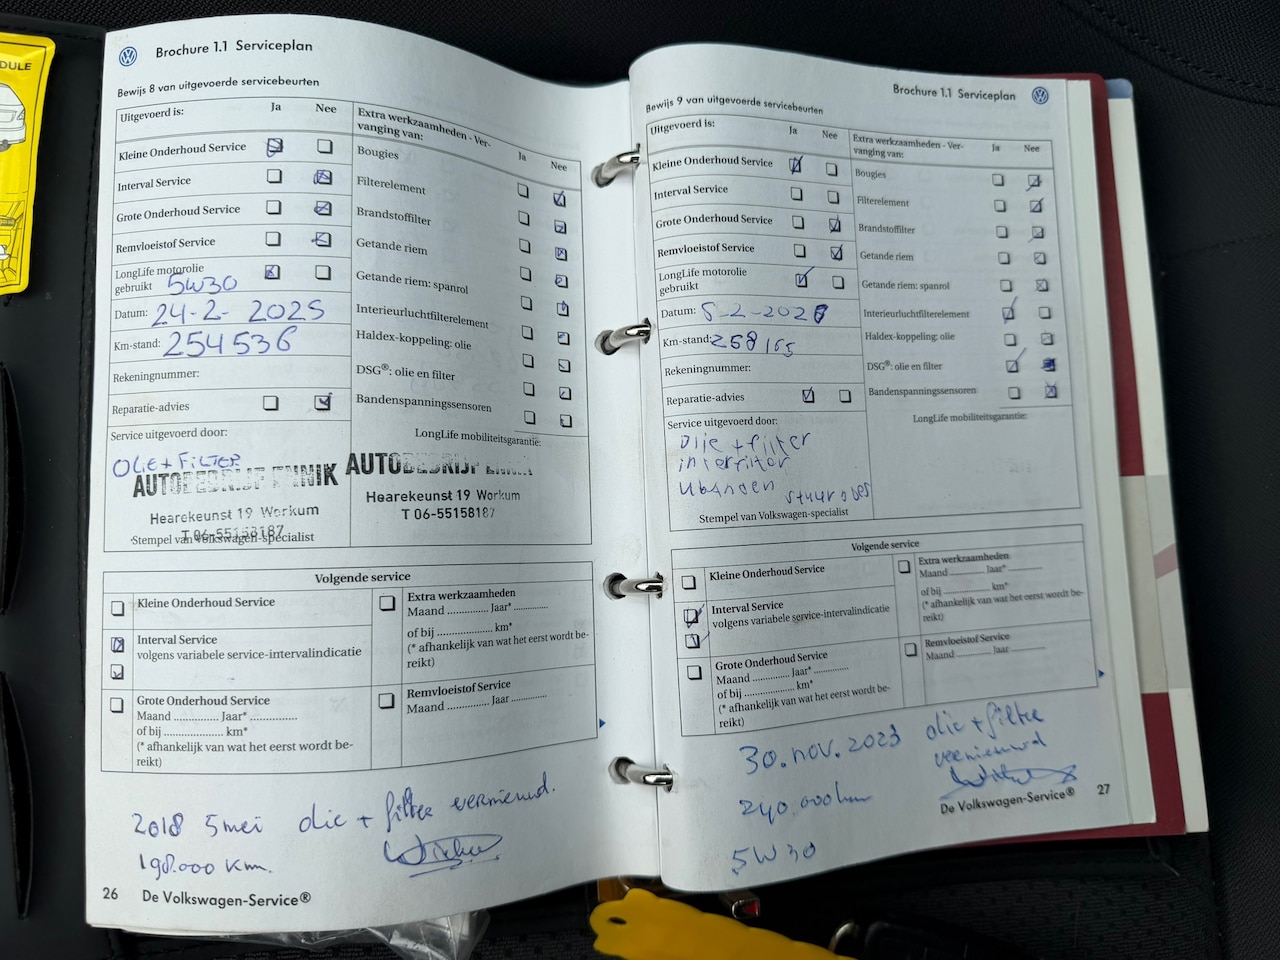 DULE
Brochure 1.1 Serviceplan
Bewijs 8 van uitgevoerde servicebeurten
Uitgevoerd is:
Ja
Nee
Kleine Onderhoud Service
Interval Service
Grote Onderhoud Service
Remvloeistof Service
LongLife motorolie
gebruikt 5W30
Datum: 24-2-2025
Km-stand: 254536
Rekeningnummer:
Reparatie-advies
Service uitgevoerd door:
OLIE + FILTER
AUTOBEDRIJF ENNIK
Hearekeunst 19 Workum
T 06-55158187
Stempel van Volkswagen-specialist
Extra werkzaamheden - Ver-
vanging van:
Ja
Nee
Bougies
Filterelement
Brandstoffilter
Getande riem
Getande riem: spanrol
Interieurluchtfilterelement
Haldex-koppeling: olie
DSG®: olie en filter
Bandenspanningssensoren
LongLife mobiliteitsgarantie:
AUTOBEDRIJF
Hearekeunst 19 Workum
T 06-55158187
Volgende service
Kleine Onderhoud Service
Interval Service
volgens variabele service-intervalindicatie
Grote Onderhoud Service
Maand .............. Jaar* ..............
of bij ..................... km*
(* afhankelijk van wat het eerst wordt be-
reikt)
Extra werkzaamheden
Maand .............. Jaar* ..............
of bij ..................... km*
(* afhankelijk van wat het eerst wordt be-
reikt)
Remvloeistof Service
Maand .............. Jaar ..............
2018 5 mei olie + filter vernieuwd.
198.000 km.
26 De Volkswagen-Service®
Brochure 1.1 Serviceplan
Bewijs 9 van uitgevoerde servicebeurten
Uitgevoerd is:
Ja
Nee
Kleine Onderhoud Service
Interval Service
Grote Onderhoud Service
Remvloeistof Service
LongLife motorolie
gebruikt
Datum: 5-2-202
Km-stand: 258165
Rekeningnummer:
Reparatie-advies
Service uitgevoerd door:
Olie + filter
interfilter
stuur
Stempel van Volkswagen-specialist
Extra werkzaamheden - Ver-
vanging van:
Ja
Nee
Bougies
Filterelement
Brandstoffilter
Getande riem
Getande riem: spanrol
Interieurluchtfilterelement
Haldex-koppeling: olie
DSG®: olie en filter
Bandenspanningssensoren
LongLife mobiliteitsgarantie:
Volgende service
Kleine Onderhoud Service
Interval Service
volgens variabele service-intervalindicatie
Grote Onderhoud Service
Maand .............. Jaar* ..............
of bij ..................... km*
(* afhankelijk van wat het eerst wordt be-
reikt)
Extra werkzaamheden
Maand .............. Jaar* ..............
of bij ..................... km*
(* afhankelijk van wat het eerst wordt be-
reikt)
Remvloeistof Service
Maand .............. Jaar ..............
30. nov. 2023 olie + filter
vernieuwd
240.000 km
5W30
De Volkswagen-Service® 27